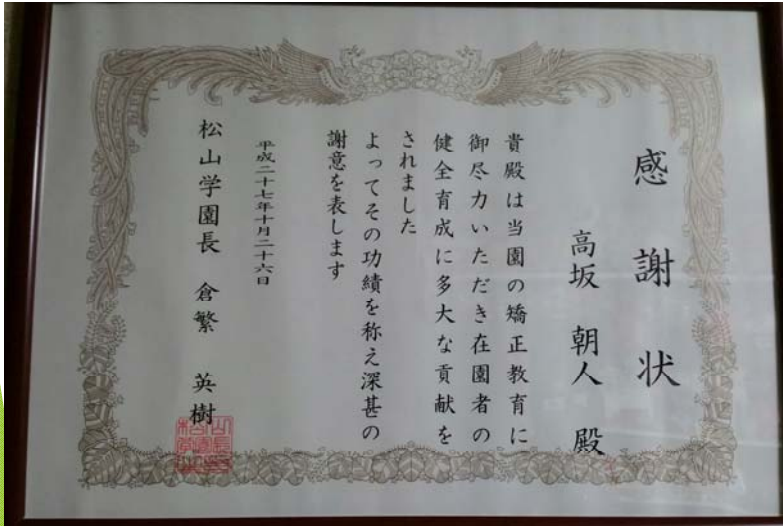 感謝状
高坂 朝人 殿
貴殿は当園の矯正教育に
御尽力いただき在園者の
健全育成に多大な貢献を
されました
よってその功績を称え深甚の
謝意を表します
平成二十七年十月二十六日
松山学園長 倉繁 英樹